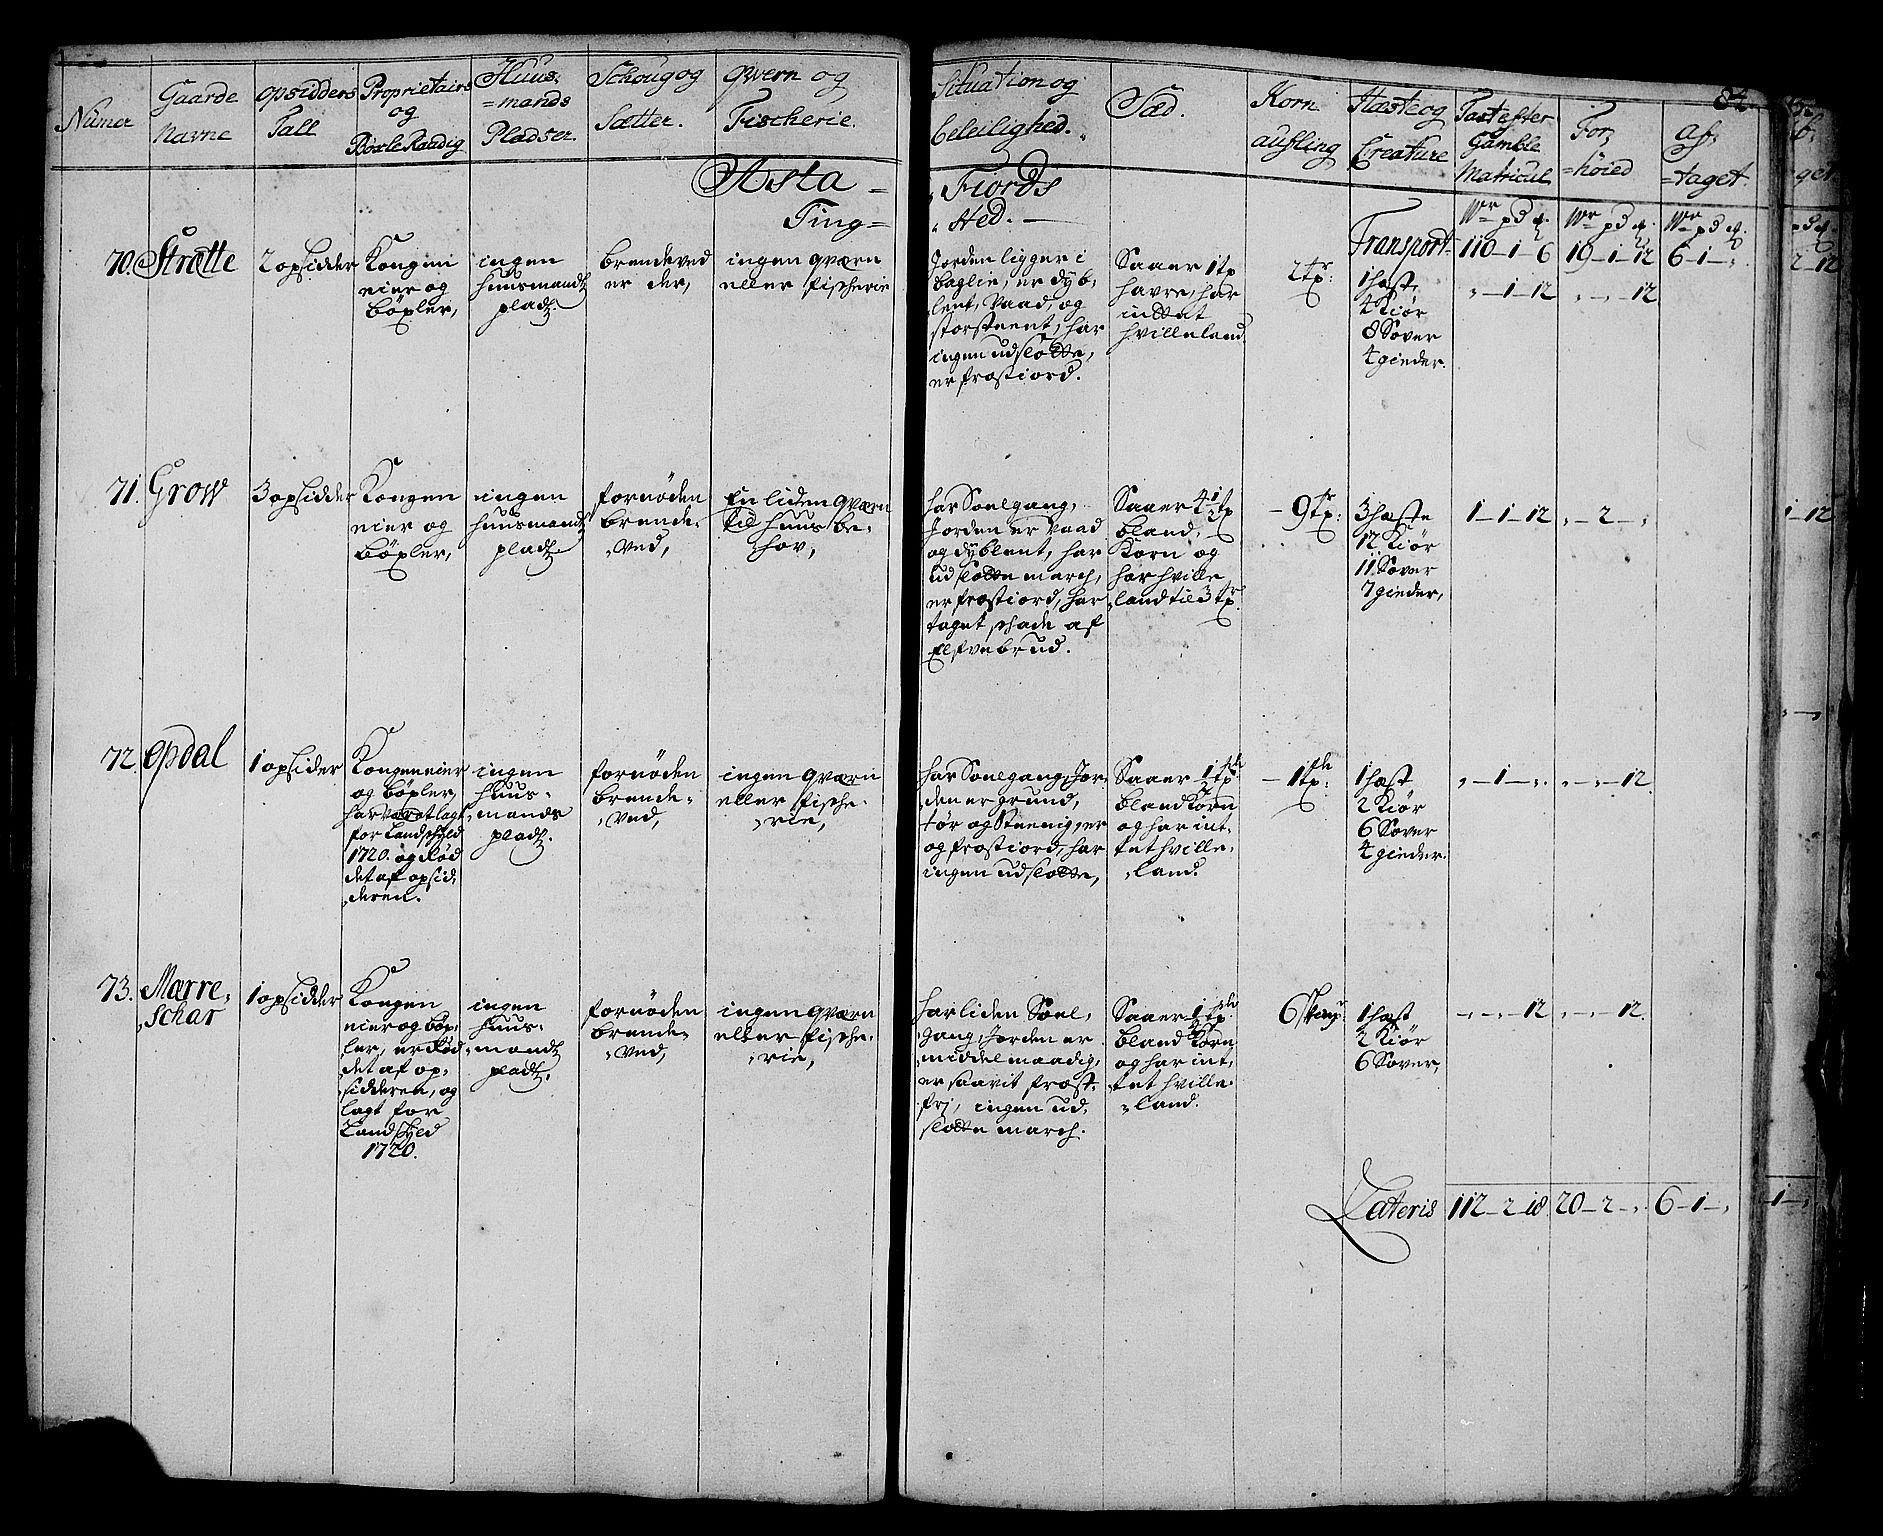 82.
Numer
Gaarde
Navne
Opsidders
Tall
Proprietairs
og
Böxle Raadig
Huus-
=mands
Pladser.
Schoug og
Sætter.
Qvern og
Fischerie.
Situation og
beleilighed.
Sæd.
Korn
aufling
Hæste og
Creature
Taxt efter
Gamble
Matricul
For,
=höied
Af,
=taget
Asta -
Fiords
Ting=
Sted. -
Wr pd f.
Wr pd f.
Wr pd f.
Transport. 110-1-6
19-1-12
6-1-,
70. Strætte
2 opsidder
Kongen
eier og
böxler,
ingen
huusmandt
pladt.
brendeved
er der,
ingen qværn
eller fischerie
Jorden ligger i
baglie, er dyb,
lent, vaad, og
storsteent, har
ingen udslotte,
er frostiord.
Saaer 1 tp
havre, har
inttet
hvilleland
2 tp:
1 hæst,
4 Kiör
8 Sover
4 gieder.
,-1-12
,-,-12
71. Grow
3 opsidder
Kongen
eier og
böxler,
ingen
huusmandt
pladt
fornöden
brende-
ved,
En liden qværn
til huus be-
hov,
har Soelgang,
Jorden er vaad
og dyblent, har
udslotte march,
er frostiord, har
taget schade af
Elfvebrud.
Saaer 4½ tp
bland-
Korn og
har hville
land til 3 tp.
- 9 tp:
3 hæste
12 Kiör
11 Sover
7 gieder,
1-1-12
,-2-,
72. Opdal
1 opsider
Kongen eier
og böxler,
har været lagt
for Landschyld
1720. og Röd
det af opsid,
deren.
ingen
huus-
mands
pladt.
fornöden
brende-
ved,
ingen qværn
eller fische-
rie,
har Soelgang, Jor,
den er grund,
tör og Steenig, er
og frostiord, har
ingen udslotte,
Saaer ½ tp
bland Korn
og har int,
tet hville-
land.
- 1 tp:
1 hæst
2 Kiör
6 Sover
4 gieder.
,-1-,
,-,-12.
73. Marre,
schar
1 opsidder
Kongen
eier og böx,
ler, er Röd
det af op,
sidderen, og
lagt for
Landschyld
1720.
ingen
huus-
mandt
pladt,
fornöden
brende-
ved,
ingen qværn
eller fische-
rie,
har liden Soel,
gang, Jorden er
middelmaadig,
er saavit frost,
fri, ingen ud,
slotte march.
Saaer ¼ tp.
bland Korn
og har int,
tet hville
land.
6 Skiep
1 hæst
2 Kiör
6 Sover,
-,-12
,-,-12.
Lateris 112-2-18
20-2-,
6-1-,